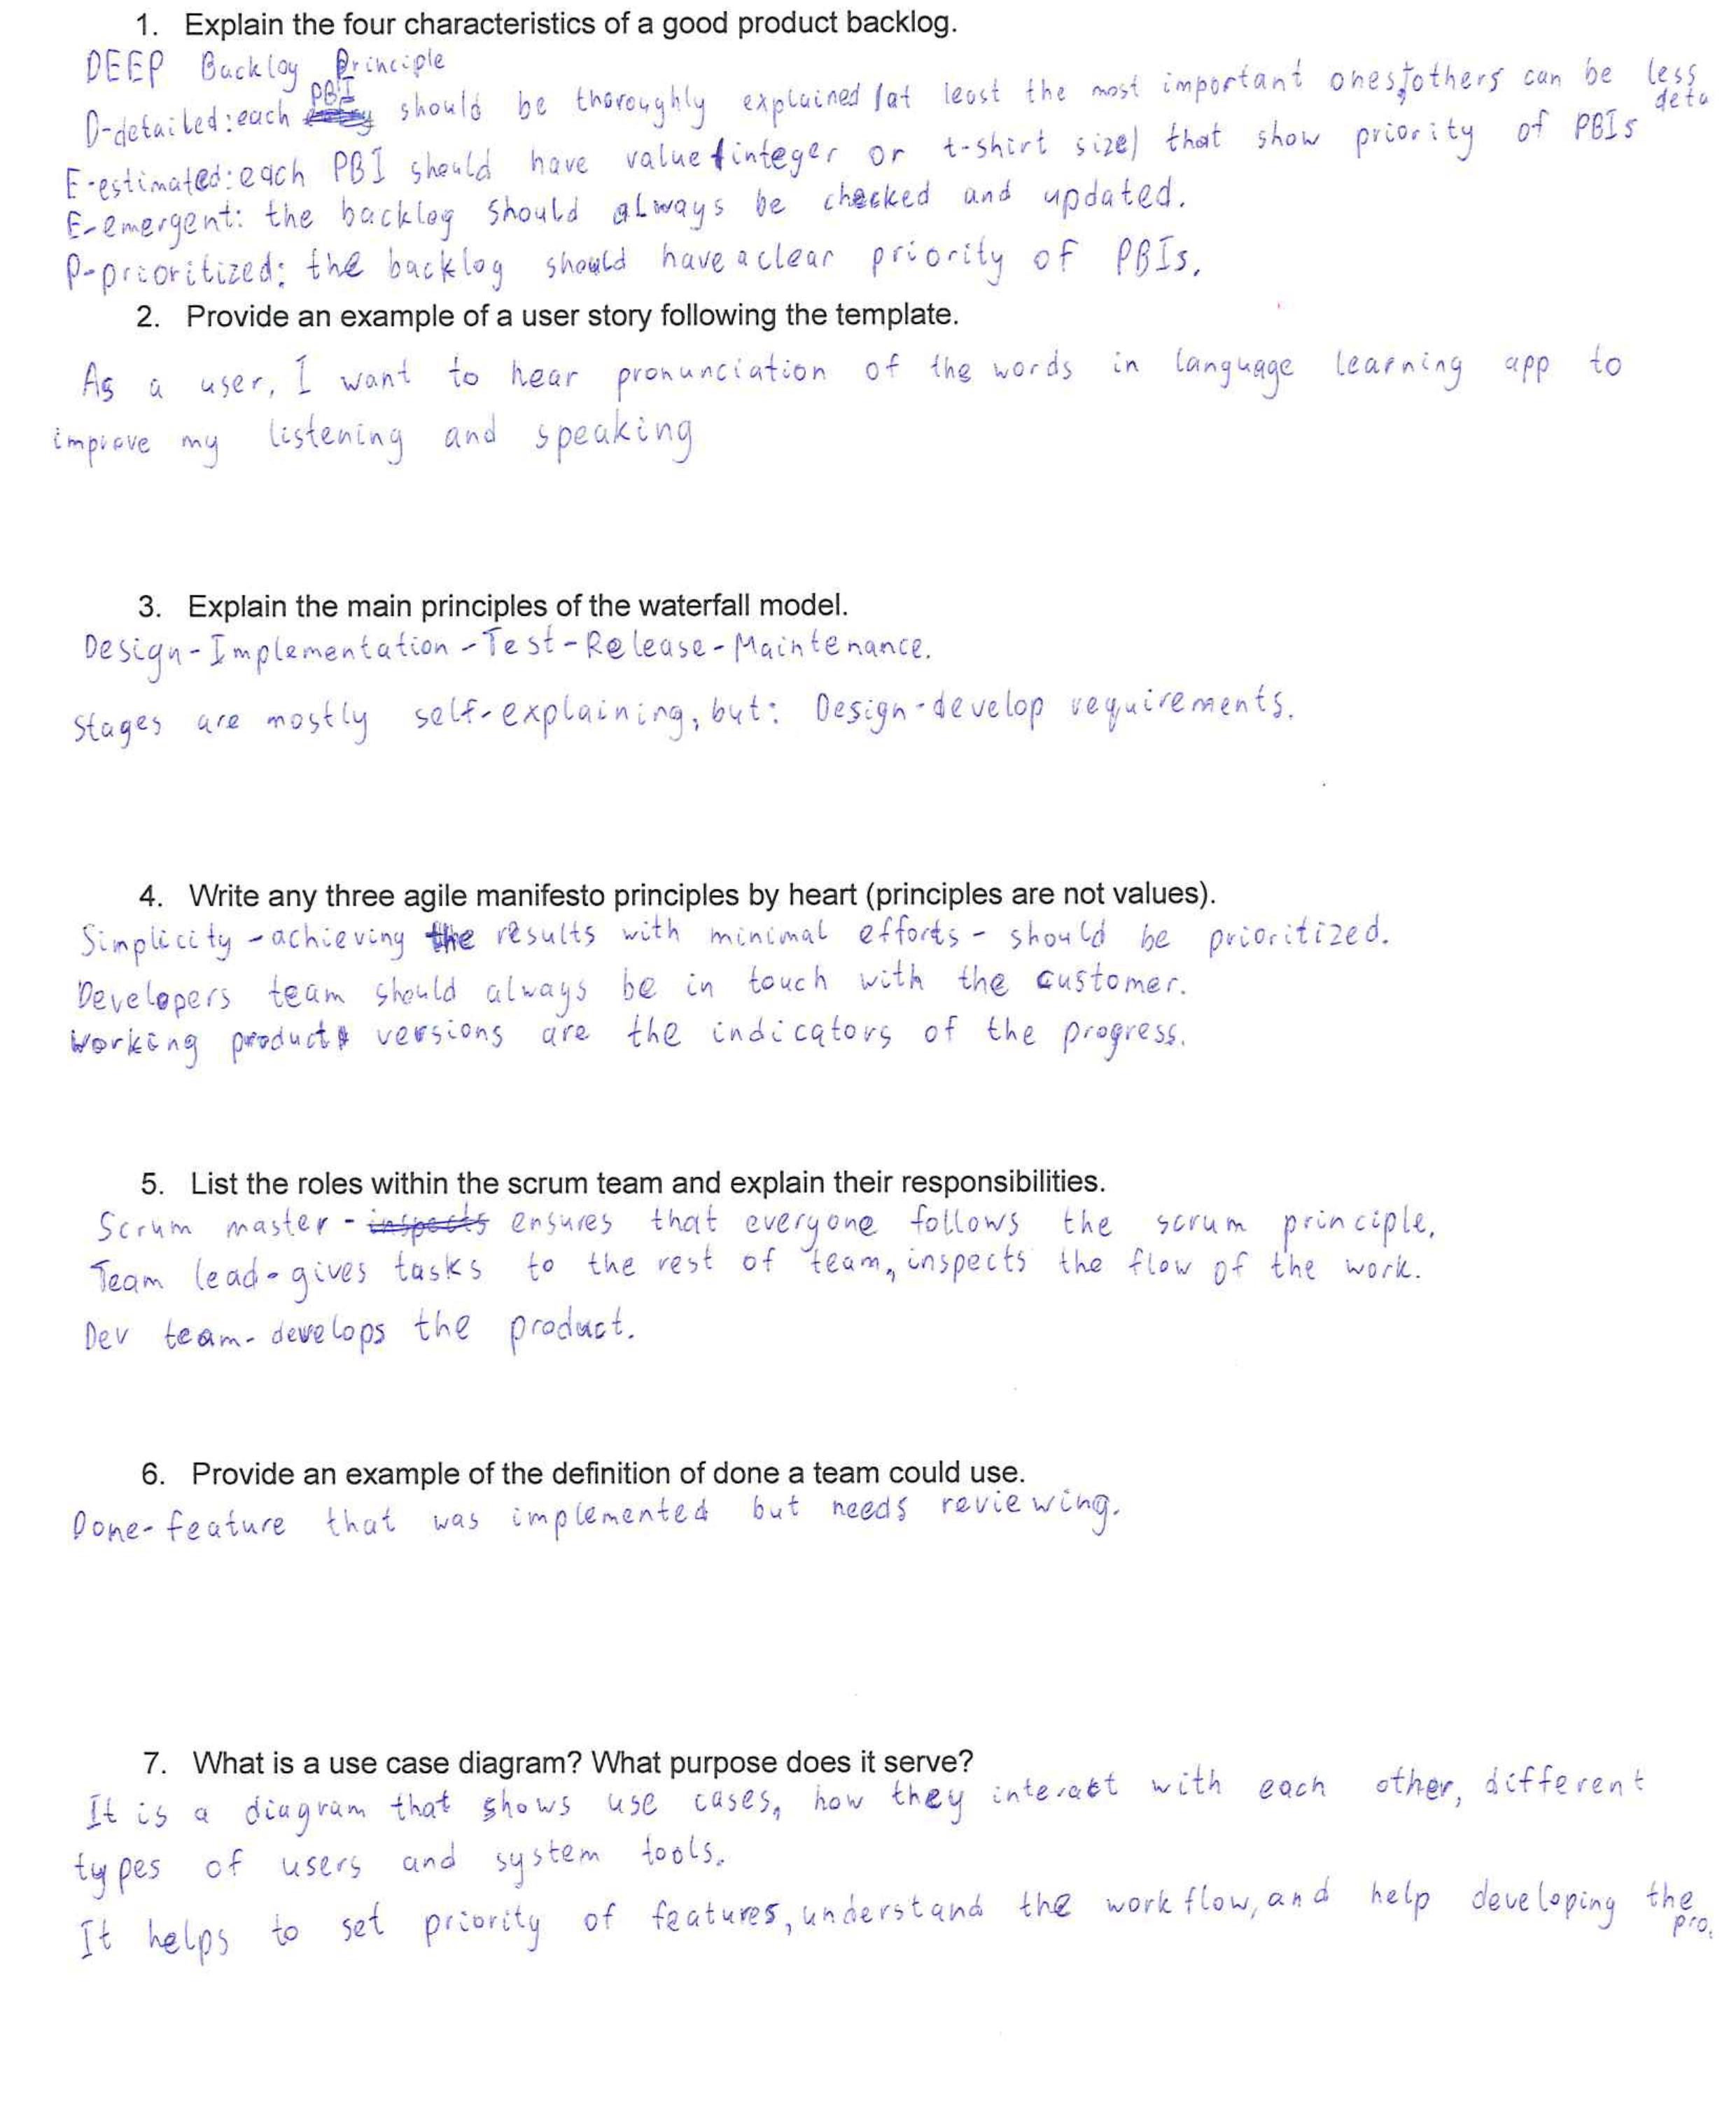 1. Explain the four characteristics of a good product backlog.
DEEP Backlog Principle
D-detailed: each PBI should be thoroughly explained (at least the most important ones, others can be less deta
E-estimated: each PBI should have value (integer or t-shirt size) that show priority of PBIs
E-emergent: the backlog should always be checked and updated.
P-prioritized: the backlog should have a clear priority of PBIs.
2. Provide an example of a user story following the template.
As a user, I want to hear pronunciation of the words in language learning app to
improve my listening and speaking
3. Explain the main principles of the waterfall model.
Design-Implementation-Test-Release-Maintenance.
Stages are mostly self-explaining, but: Design-develop requirements.
4. Write any three agile manifesto principles by heart (principles are not values).
Simplicity - achieving the results with minimal efforts - should be prioritized.
Developers team should always be in touch with the customer.
Working product versions are the indicators of the progress.
5. List the roles within the scrum team and explain their responsibilities.
Scrum master - inspects ensures that everyone follows the scrum principle.
Team lead - gives tasks to the rest of team, inspects the flow of the work.
Dev team - develops the product.
6. Provide an example of the definition of done a team could use.
Done - feature that was implemented but needs reviewing.
7. What is a use case diagram? What purpose does it serve?
It is a diagram that shows use cases, how they interact with each other, different
types of users and system tools.
It helps to set priority of features, understand the workflow, and help developing the pro.